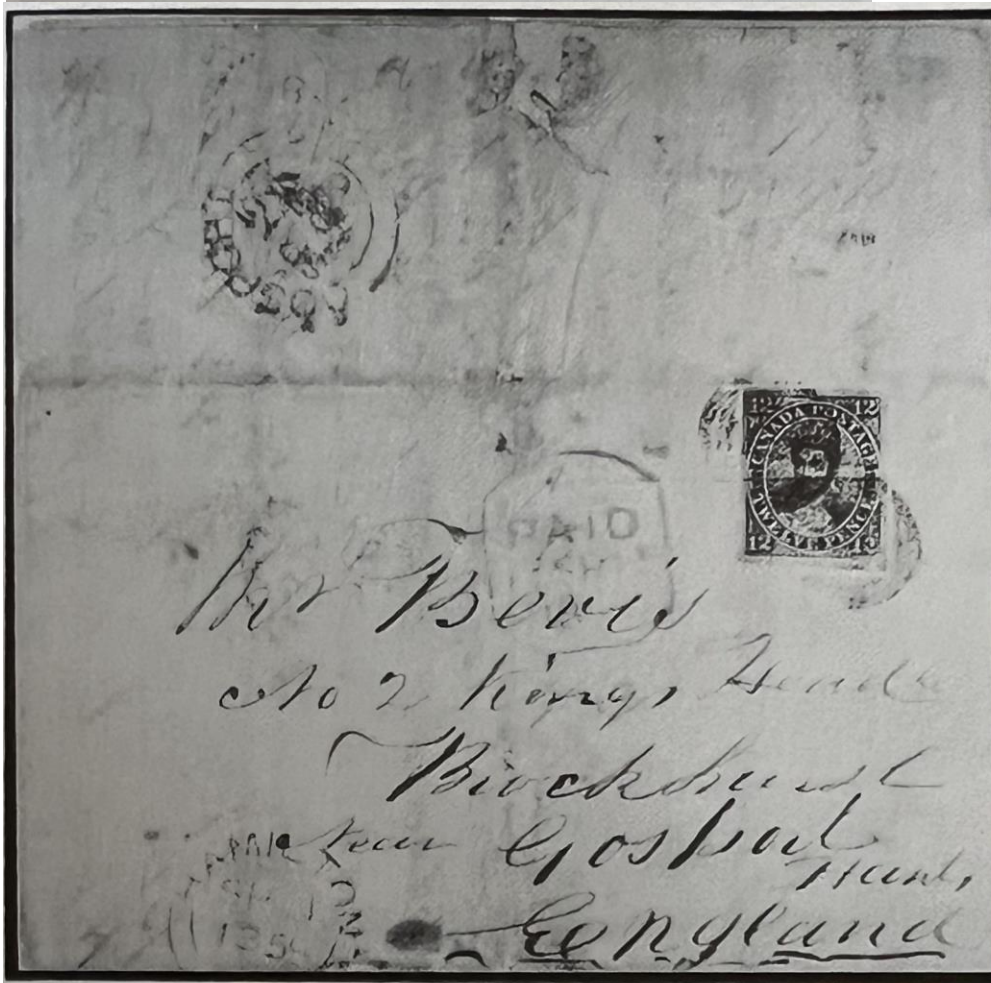 12 12
CANADA POSTAGE
TWELVE PENCE
12 12
PAID
Mr Bevis
No 2 Kings Head
Brockhurst
near Gosport
Hants
England